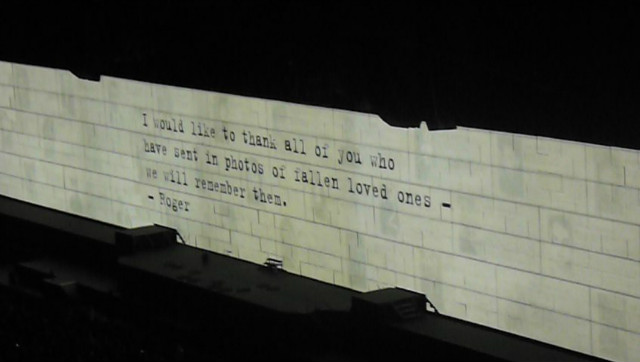 I would like to thank all of you who
have sent in photos of fallen loved ones -
we will remember them.
- Roger